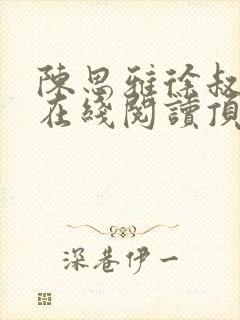 陳思雅徐叔
在綫閱讀頂
深巷伊一